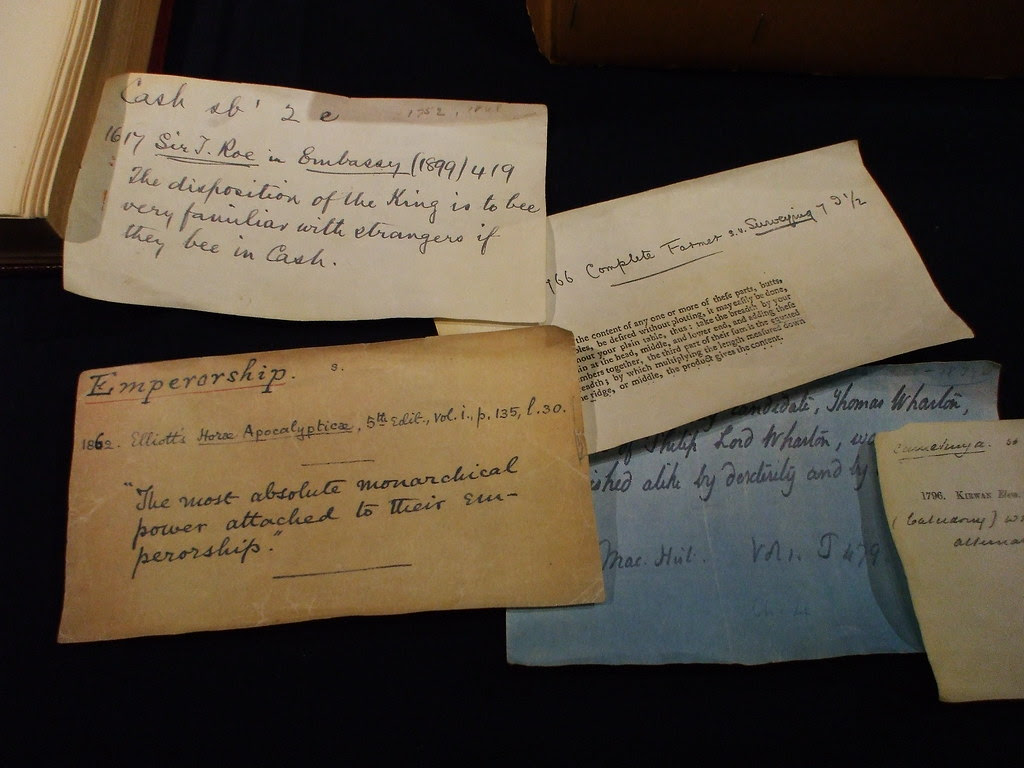 Cash sb' 2 e
1617 Sir T. Roe in Embassy (1899) 419
The disposition of the King is to bee
very familiar with strangers if
they bee in Cash.
766 Complete Farmer s.v. Surveying 7
the content of any one or more of these parts, butts,
be desired without plotting, it may easily be done,
your plain table, thus: take the breadth by your
at the head, middle, and lower end, and adding these
together, the third part of their sum is the equated
by which multiplying the length measured down
ridge, or middle, the product gives the content.
Emperorship. s.
1862. Elliott's Horæ Apocalypticæ, 5th Edit., Vol. i., p. 135, l. 30.
"The most absolute monarchical
power attached to their em-
perorship."
candidate, Thomas Wharton,
of Philip Lord Wharton,
alike by dexterity and by
Mac. Hist. Vol 1.
1796. Kirwan Elem.